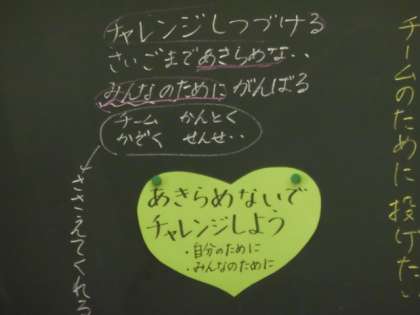 チャレンジしつづける
さいごまであきらめな・・
みんなのために がんばる
チーム かんとく
かぞく せんせ・・
ささえてくれる
あきらめないで
チャレンジしよう
・自分のために
・みんなのために
チームのために 投げたい